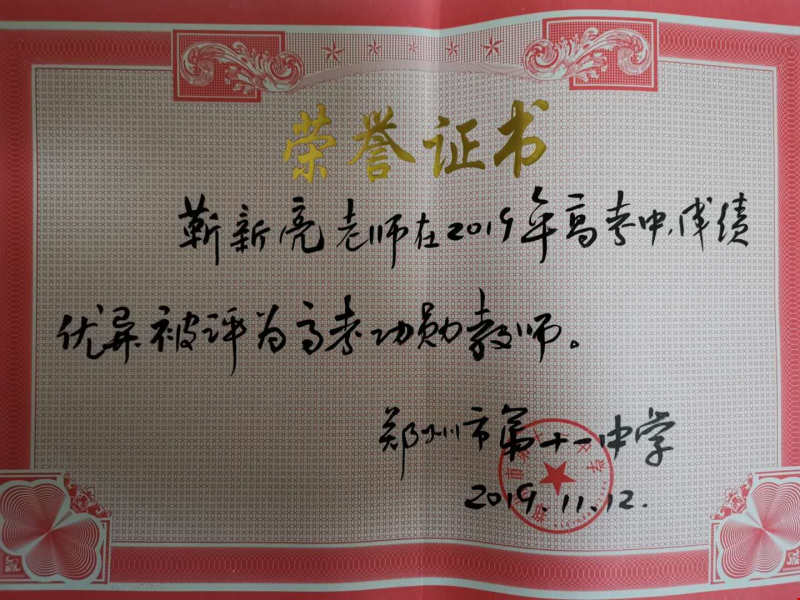 荣誉证书
靳新亮老师在2019年高考中,成绩
优异被评为高考功勋教师。
郑州市第十一中学
2019.11.12.